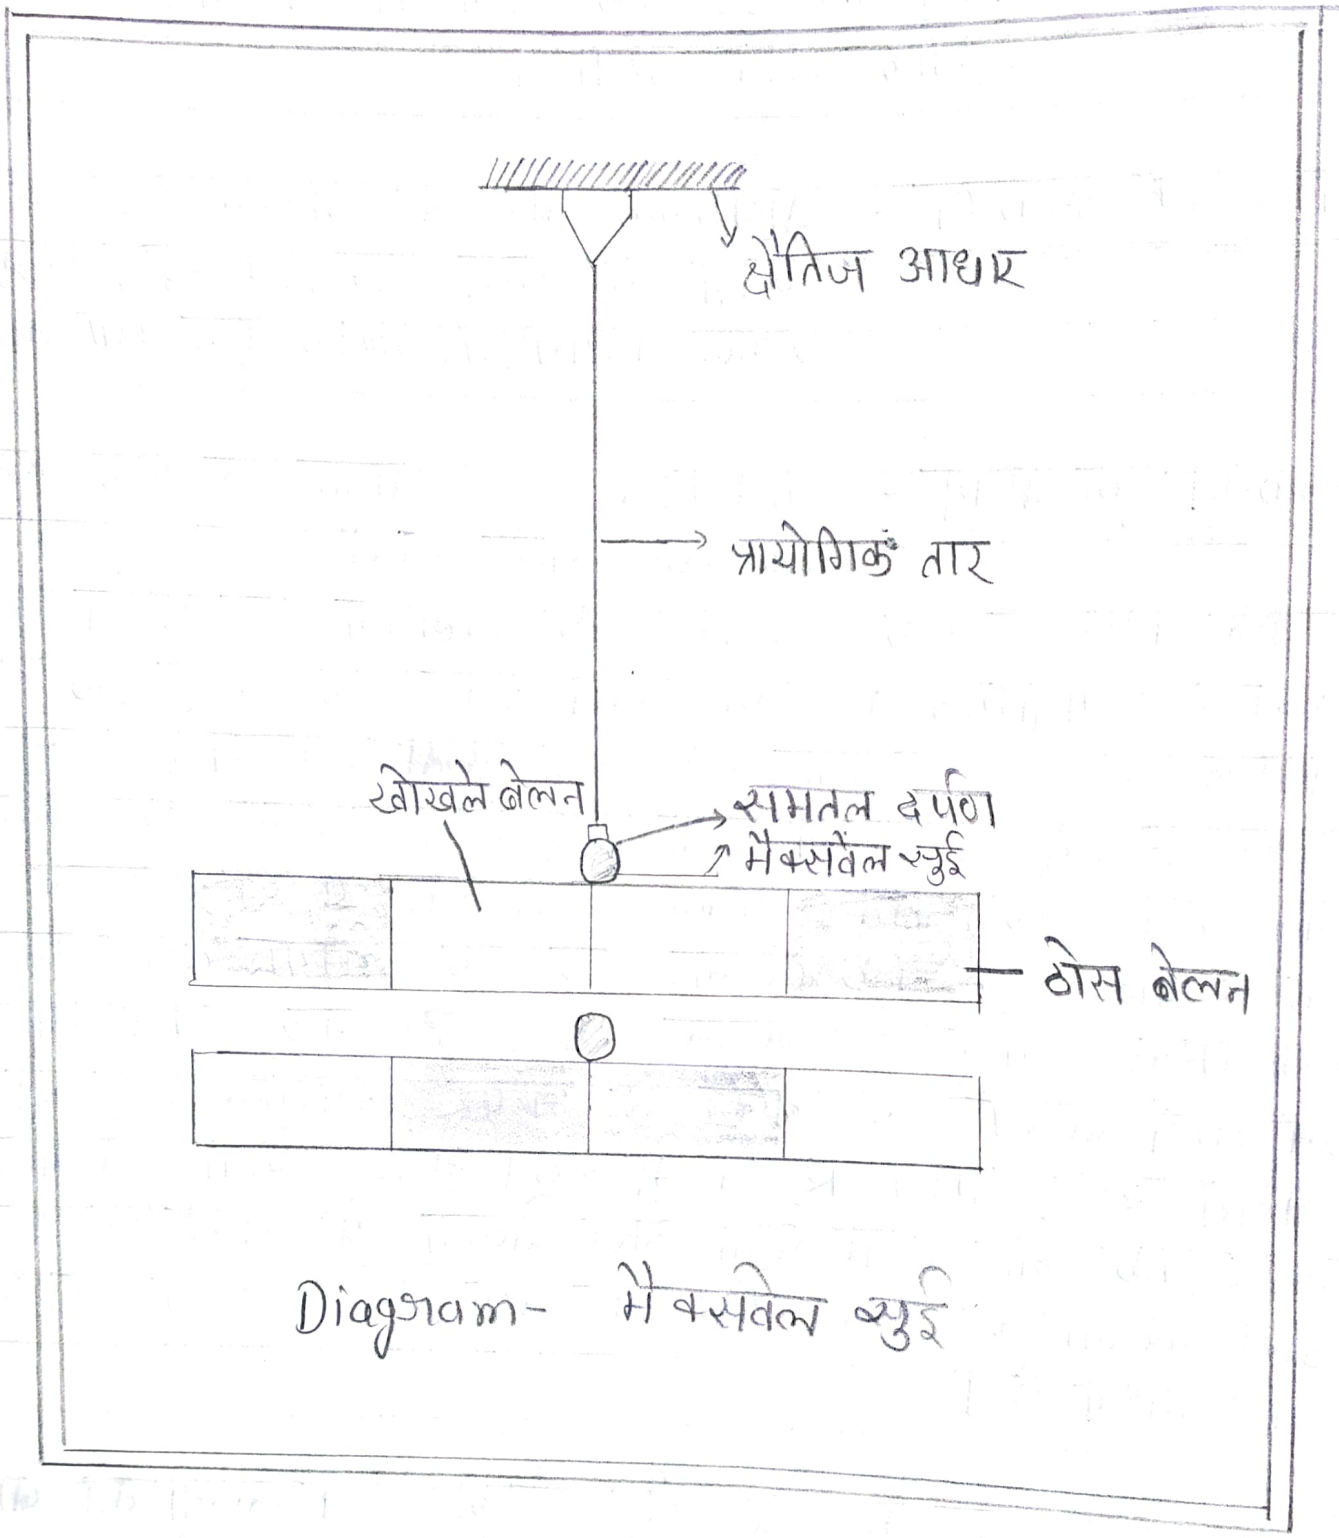 क्षैतिज आधार
प्रायोगिक तार
खोखले बेलन
समतल दर्पण
मैक्सवेल सुई
ठोस बेलन
Diagram- मैक्सवेल सुई